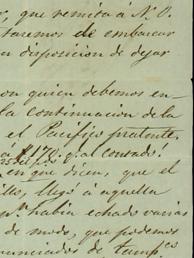 , que remita á N. O.
taremos de embarcar
a disposicion de dejar
on quien debemos en-
la continuacion de la
el Pacífico
al contado!
en que dicen, que el
llo, llegó á aquella
había echado varias
de modo, que podemos
nunciados de